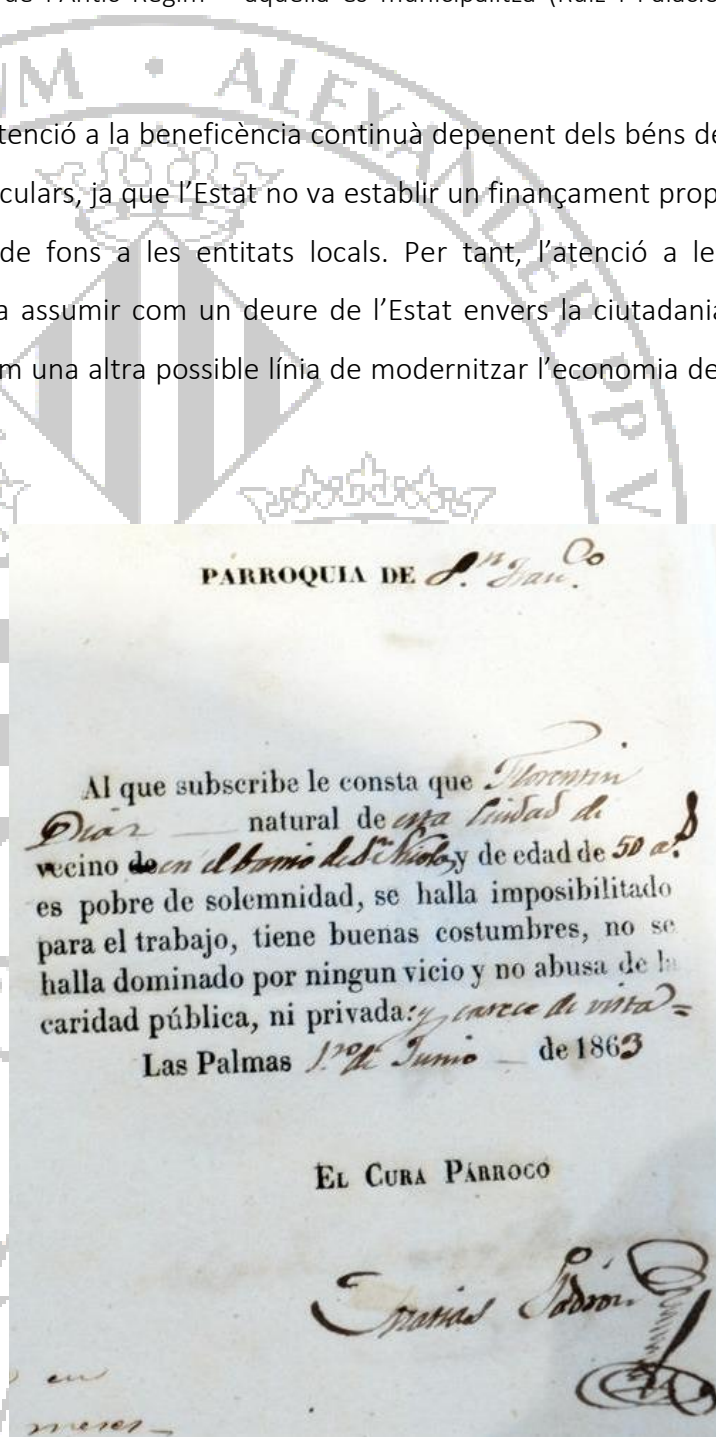 de l'Antic Règim – aquella es municipalitza (Ruiz i Palacio
tenció a la beneficència continuà depenent dels béns de
culars, ja que l'Estat no va establir un finançament prop
de fons a les entitats locals. Per tant, l'atenció a le
a assumir com un deure de l'Estat envers la ciutadania
m una altra possible línia de modernitzar l'economia de
UM • ALEXANDER PP VI
PARROQUIA DE S.n Fran.co
Al que subscribe le consta que Florentin
Diaz natural de esta Ciudad de
vecino de en el barrio de Sn Nicolas y de edad de 50 a.s
es pobre de solemnidad, se halla imposibilitado
para el trabajo, tiene buenas costumbres, no se
halla dominado por ningun vicio y no abusa de la
caridad pública, ni privada: y carece de vista =
Las Palmas 1.ro de Junio de 1863
EL CURA PÁRROCO
Padron
en
meses